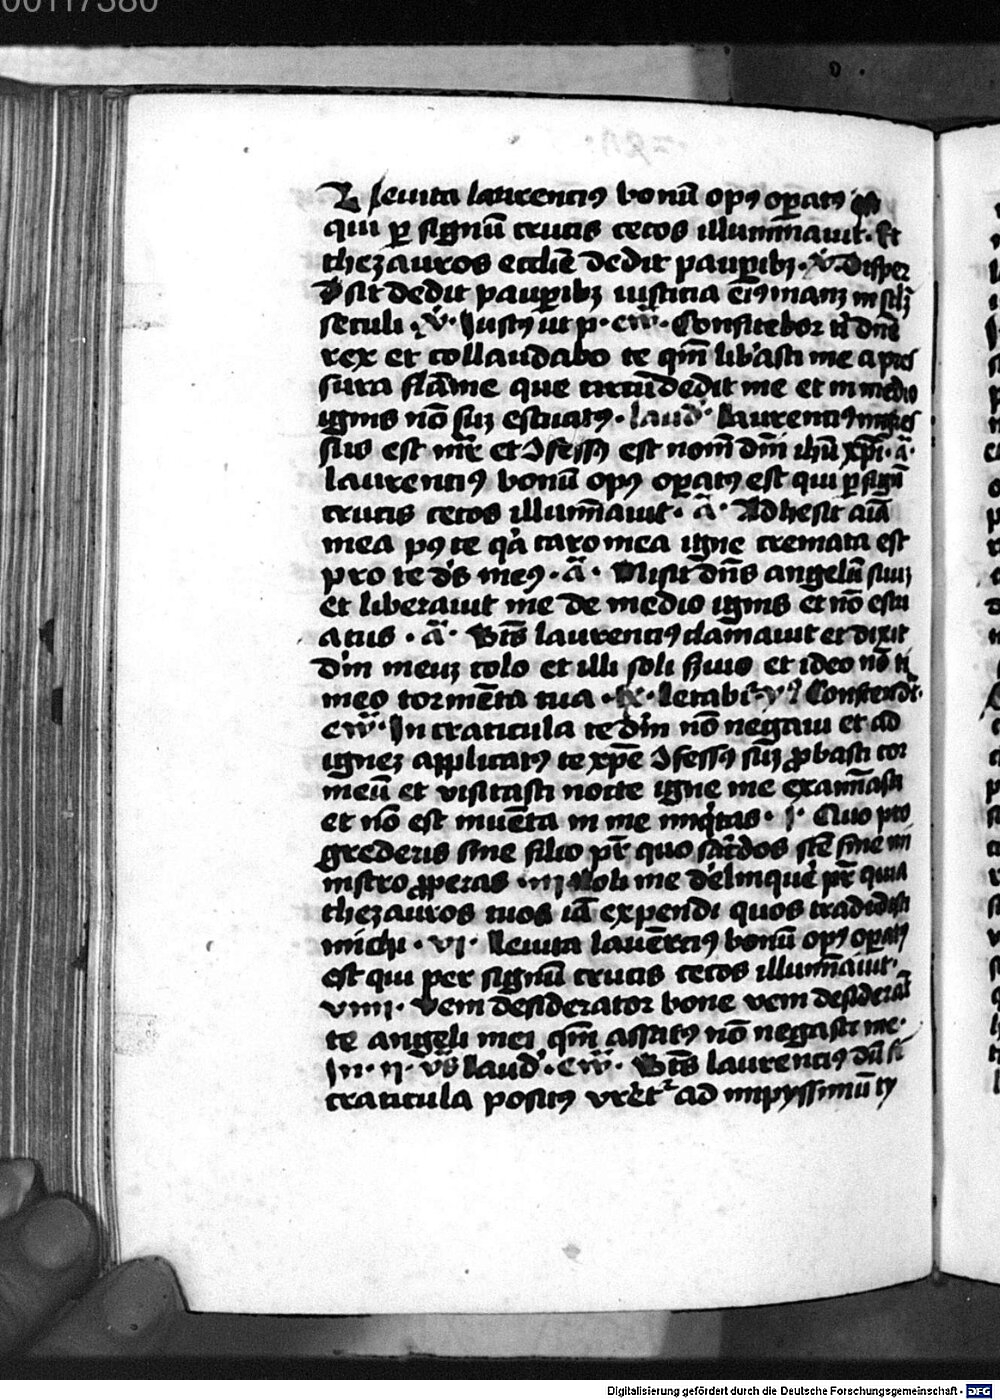 00117380
R leuita laurenciꝰ bonū opꝰ oꝑatꝰ
qui ꝑ signū crucis cecos illumīauit · Et
thezauros ecclīe dedit pauꝑibꝫ · v̄ · Disper
sit dedit pauꝑibꝫ iusticia eiꝰ manꝫ in sclꝫ
seculi · v̄ · Justꝰ ut p · ew̄ · Confitebor ti dnē
rex et collaudabo te qm̄ lib'asti me a pres
sura flāme que circūdedit me et in medio
ignis nō suꝫ estuatꝰ · laud' · Laurenciꝰ ingres
sus est mr̄ et ꝯfessꝰ est nom̄ dnī ihū xp̄i · ā ·
laurenciꝰ bonū opꝰ oꝑatꝰ est qui ꝑ signū
crucis cecos illumīauit · ā · Adhesit aīa
mea pꝰ te qꝛ caro mea igne cremata est
pro te ds̄ meꝰ · ā · Misit dn̄s angelū suuꝫ
et liberauit me de medio ignis et nō estu
atus · ā · Bt̄s laurenciꝰ clamauit et dixit
dm̄ meuꝫ colo et illi soli ẜuio et ideo nō ti
meo tormēta tua · letabit' · v · Conscendit
ew̄ · In craticula te dm̄ nō negaui et ad
igneꝫ applicatꝰ te xp̄e ꝯfessꝰ suꝫ ꝓbasti cor
meū et visitasti nocte igne me examīasti
et nō est inuēta in me iniqͥtas · j · Quo pro
grederis sine filio pr̄ quo sac̄dos sc̄e sine mi
nistro ꝓperas · iij Noli me derelinque' pr̄ quia
thezauros tuos iā expendi quos tradidisti
michi · vi · Leuita laurēciꝰ bonū opꝰ oꝑatꝰ
est qui per signū crucis cecos illumīauit ·
viiii · veni desiderator bone veni desiderāt
te angeli mei qm̄ assatꝰ nō negasti me ·
Jn · ij · vs̄ laud' · ew̄ · Bt̄s laurenciꝰ dū ī
craticula positꝰ vreret' ad impyssimū ty
Digitalisierung gefördert durch die Deutsche Forschungsgemeinschaft - DFG